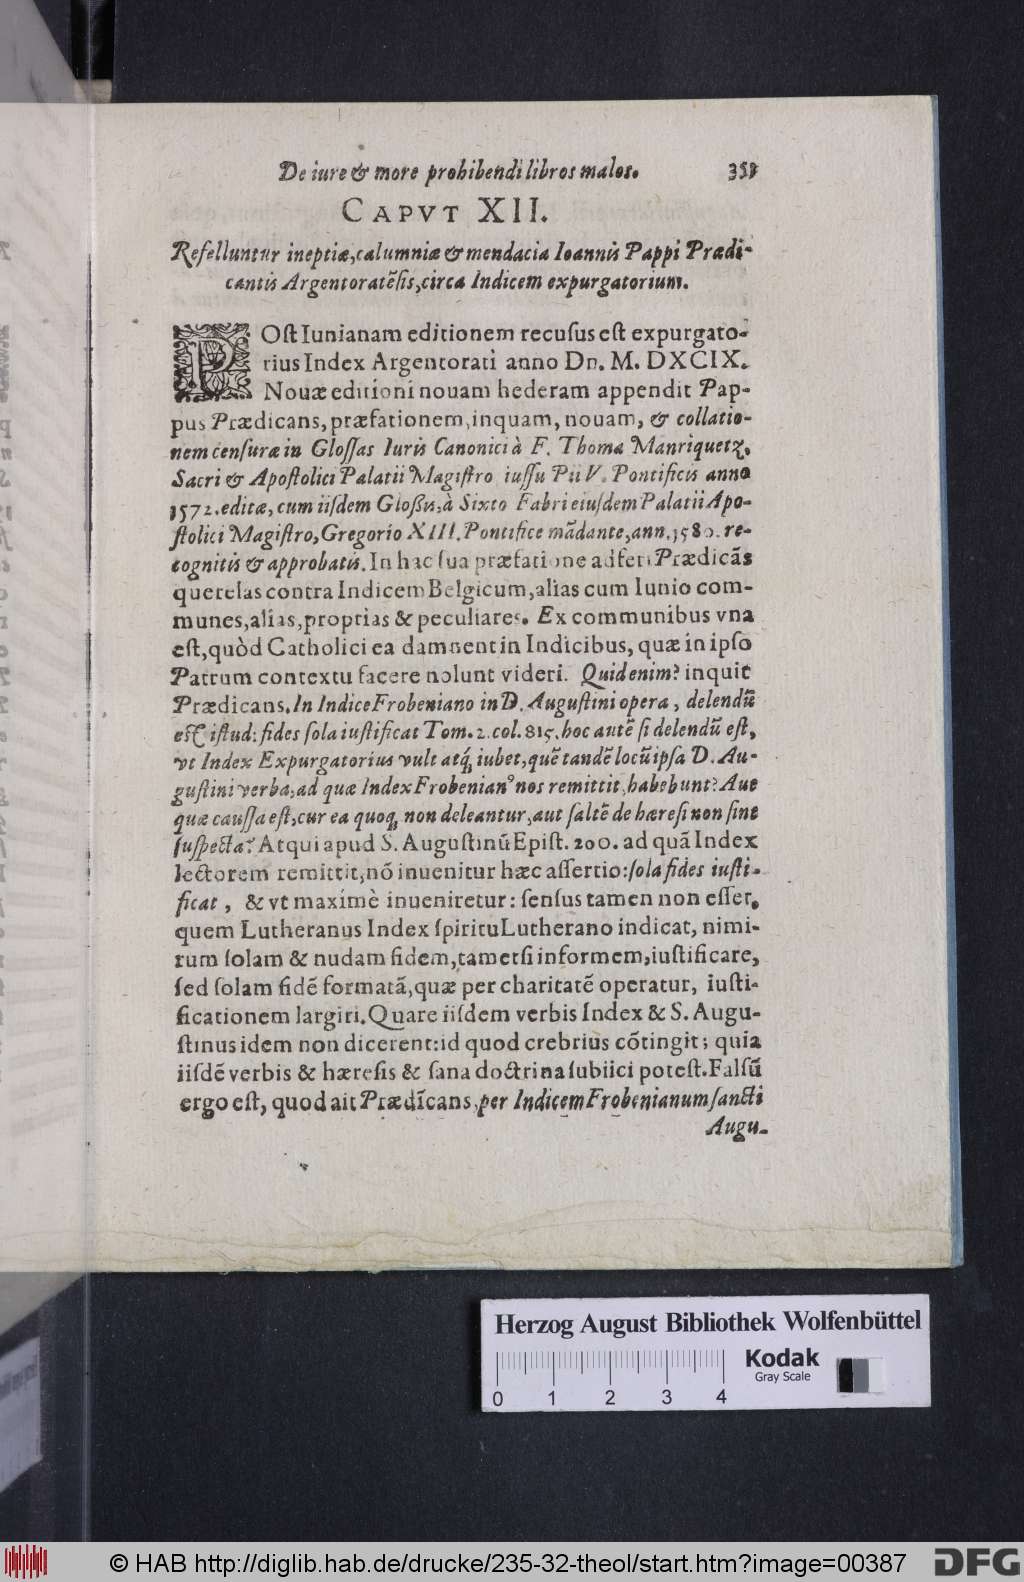 De iure & more prohibendi libros malos. 353
CAPVT XII.
Refelluntur ineptiæ, calumniæ & mendacia Ioannis Pappi Prædi-
cantis Argentoratẽsis, circa Indicem expurgatorium.
POst Iunianam editionem recusus est expurgato-
rius Index Argentorati anno Dn. M. DXCIX.
Novæ editioni nouam hederam appendit Pap-
pus Prædicans, præfationem, inquam, nouam, & collatio-
nem censuræ in Glossas Iuris Canonici à F. Thoma Manriquetz,
Sacri & Apostolici Palatii Magistro iussu Pii V. Pontificis anno
1572. editæ, cum iisdem Glossis, à Sixto Fabri eiusdem Palatii Apo-
stolici Magistro, Gregorio XIII. Pontifice mãdante, ann. 1580. re-
cognitis & approbatis. In hac sua præfatione adfert Prædicãs
querelas contra Indicem Belgicum, alias cum Iunio com-
munes, alias, proprias & peculiares. Ex communibus vna
est, quòd Catholici ea damnent in Indicibus, quæ in ipso
Patrum contextu facere nolunt videri. Quid enim? inquit
Prædicans. In Indice Frobeniano in D. Augustini opera, delendũ
est istud: fides sola iustificat Tom. 2. col. 815. hoc autẽ si delendũ est,
vt Index Expurgatorius vult atq; iubet, quẽ tandẽ locũ ipsa D. Au-
gustini verba, ad quæ Index Frobenianꝰ nos remittit, habebunt? Aut
quæ caussa est, cur ea quoq; non deleantur, aut saltẽ de hæresi non sint
suspecta? Atqui apud S. Augustinũ Epist. 200. ad quã Index
lectorem remittit, nõ inuenitur hæc assertio: sola fides iusti-
ficat, & vt maximè inueniretur: sensus tamen non esset,
quem Lutheranus Index spiritu Lutherano indicat, nimi-
rum solam & nudam fidem, tametsi informem, iustificare,
sed solam fidẽ formatã, quæ per charitatẽ operatur, iusti-
ficationem largiri. Quare iisdem verbis Index & S. Augu-
stinus idem non dicerent: id quod crebrius cõtingit; quia
iisdẽ verbis & hæresis & sana doctrina subiici potest. Falsũ
ergo est, quod ait Prædicans, per Indicem Frobenianum sancti
Augu-
Herzog August Bibliothek Wolfenbüttel
0 1 2 3 4
Kodak
Gray Scale
© HAB http://diglib.hab.de/drucke/235-32-theol/start.htm?image=00387
DFG